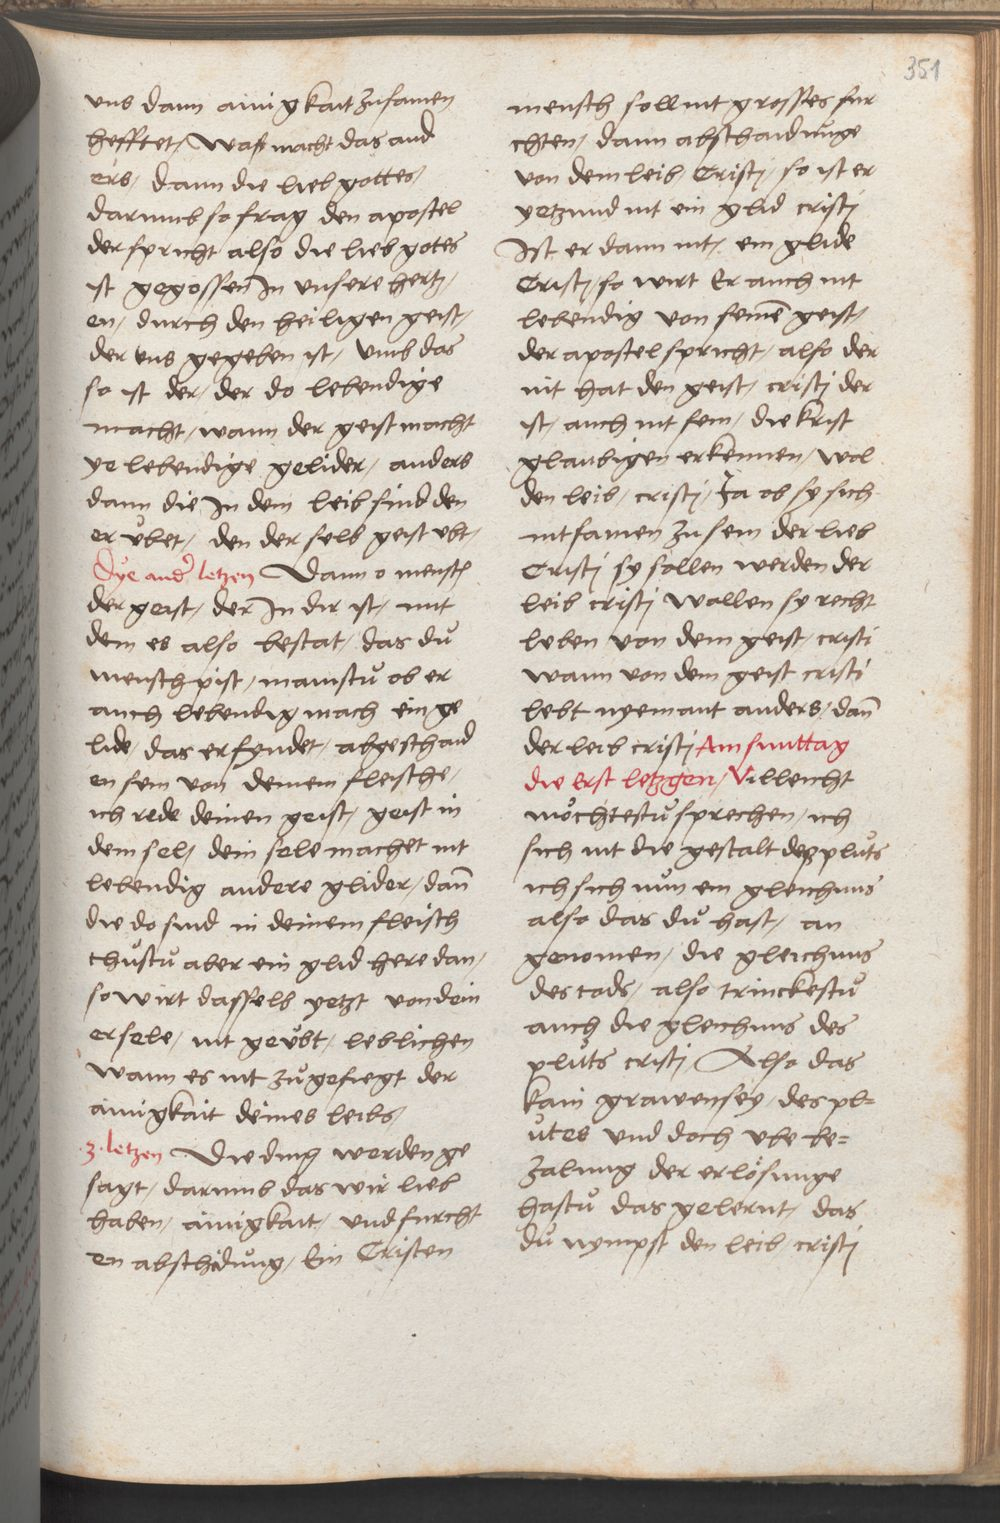 351
vns dann ainigkait zusamen
hefftet / Was macht das and
ers / dann die lieb gottes /
darumb so frag den apostel
der spricht also die lieb gotes
ist gegossen In vnsere hertz /
en / durch den heiligen geist /
der vns gegeben ist / vmb das
so ist der / der do lebendige
macht / wann der geist macht
ye lebendige gelider / anders
dann die In dem leib sind den
er vbet / den der selb geist vbt /
Dye ander letzen Dann o mensch
der geist / der In dir ist / mit
dem es also bestat / das du
mensch pist / mainstu ob er
auch lebendig mach ein ge
lide / das er fyndet / abgeschaid
en sein von deinem fleische /
ich rede deinen geist / geist in
dem sel / dein sele machet nit
lebendig andere glider / dann
die do sind in deinem fleisch
thustu aber ein glid here dan /
so wirt dasselb yetzt von dein
er sele / nit geubt / leblichen
wann es nit zugefiegt der
ainigkait deines leibs /
.3. letzen Die ding werden ge
sagt / darumb das wir lieb
haben / ainigkait / vnd furcht
en abschidung / Ein Cristen
mensch soll nit grosses fur
chten / dann abschaidunge
von dem leib / Cristi / so ist er
yetzund nit ein glid cristi
Ist er dann nit / ein glide
Cristi / so wirt Er auch nit
lebendig von seinem geist /
der apostel spricht / also der
nit hat den geist / cristi der
ist / auch nit sein / die krist
glaubigen erkennen / wol
den leib / cristi / Ja ob sy sich
nit samen zu sein der lieb
Cristi sy sollen werden der
leib cristi wollen sy recht
leben von dem geist / cristi
wann von dem geist cristi
lebt nyemant anders / dann
der leib cristi Am sunttag
die Erst letzgen / Villeicht
möchtestu sprechen / ich
sich nit die gestalt des pluts
ich sich nun ein gleichnus
also das du hast / an
genomen / die gleichnus
des tods / also trinckestu
auch die gleichnus des
pluts cristi Also das
kain grawen sey / des pl=
utes vnd doch vbe be=
zalung der erlösunge
hastu das gelernt / das
du nympst den leib / cristi